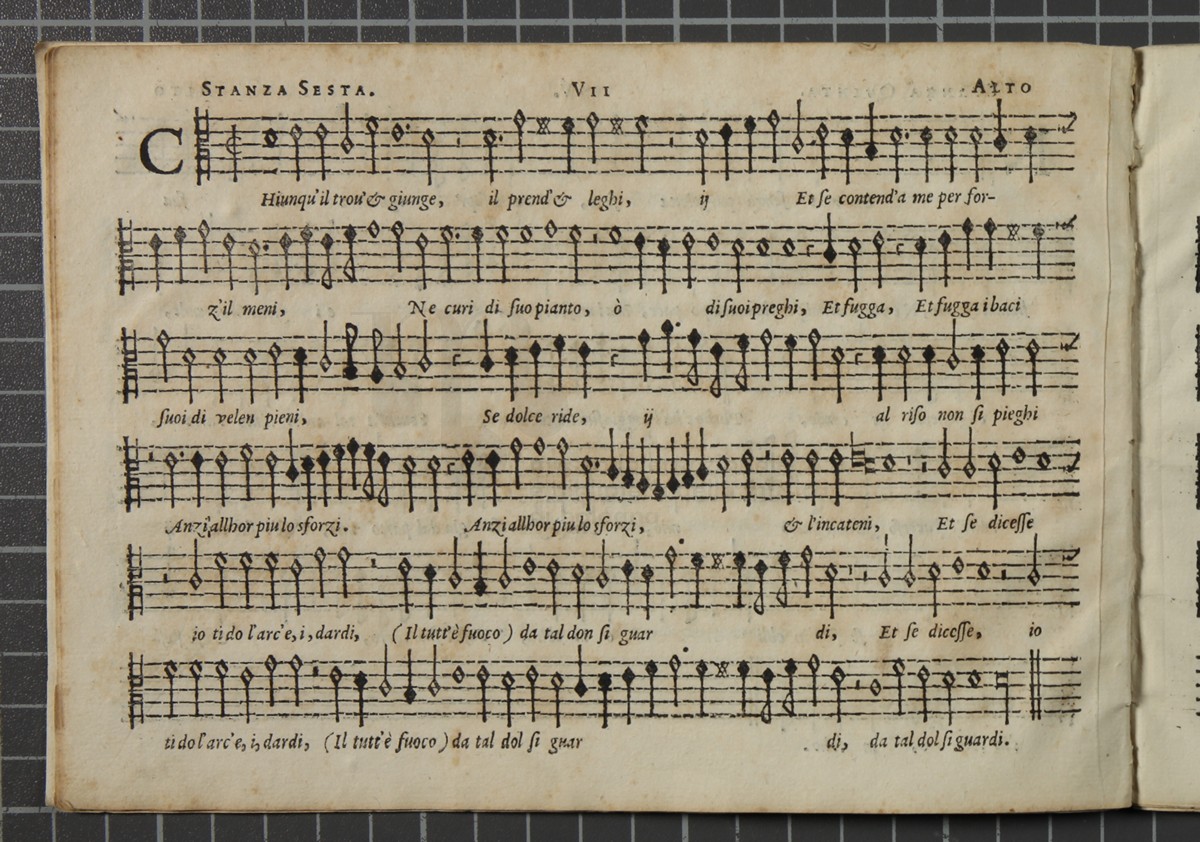 STANZA SESTA. VII ALTO
CHiunqu'il trou'& giunge, il prend'& leghi, ij Et se contend'a me per for-
z'il meni, Ne curi di suo pianto, ò di suoi preghi, Et fugga, Et fugga i baci
suoi di velen pieni, Se dolce ride, ij al riso non si pieghi
Anzi allhor piu lo sforzi. Anzi allhor piu lo sforzi, & l'incateni, Et se dicesse
io ti do l'arc'e, i, dardi, (Il tutt'è fuoco) da tal don si guar di, Et se dicesse, io
ti do l'arc'e, i, dardi, (Il tutt'è fuoco) da tal dol si guar di, da tal dol si guardi.